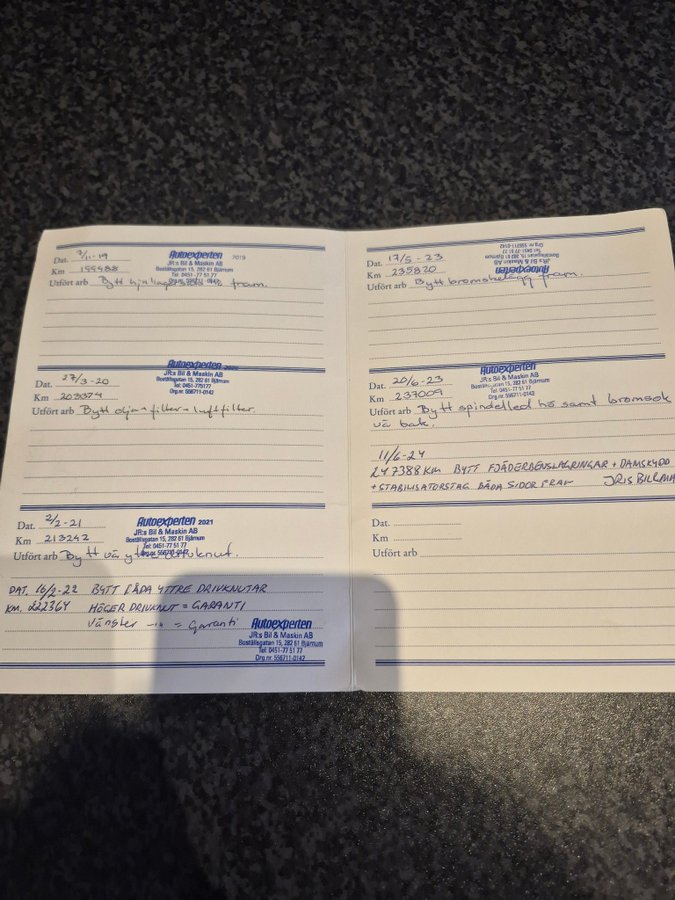 Dat. 7/11-19
Autoexperten 2019
JR:s Bil & Maskin AB
Km 199988
Boställsgatan 15, 282 61 Bjärnum
Tel: 0451-77 51 77
Utfört arb Bytt hjullager fram.
Autoexperten
JR:s Bil & Maskin AB
Dat. 27/3-20
Boställsgatan 15, 282 61 Bjärnum
Tel: 0451-775177
Km 203374
Org.nr: 556711-0142
Utfört arb Bytt olja+filter+luftfilter.
Dat. 2/2-21
Autoexperten 2021
JR:s Bil & Maskin AB
Km 213242
Boställsgatan 15, 282 61 Bjärnum
Tel: 0451-77 51 77
Utfört arb Bytt vä yttre drivknut.
DAT. 16/2-22 BYTT BÅDA YTTRE DRIVKNUTAR
KM. 222364 HÖGER DRIVKNUT = GARANTI
Vänster -"- = Garanti
Autoexperten
JR:s Bil & Maskin AB
Boställsgatan 15, 282 61 Bjärnum
Tel: 0451-77 51 77
Org.nr. 556711-0142
Dat. 17/5-23
Km 235820
Org.nr. 556711-0142
Tel: 0451-77 51 77
Boställsgatan 15, 282 61 Bjärnum
JR:s Bil & Maskin AB
Autoexperten
Utfört arb Bytt bromsbelägg fram.
Dat. 20/6-23
Autoexperten
JR:s Bil & Maskin AB
Km 237009
282 61 Bjärnum
Tel: 0451-77 51 77
Org.nr. 556711-0142
Utfört arb Bytt spindelled hö samt bromsok
vä bak.
11/6-24
247388 KM BYTT FJÄDERBENSLAGRINGAR + DAMSKYDD
+STABILISATORSTAG BÅDA SIDOR FRAM JRS BIL&MA
Dat.
Km
Utfört arb